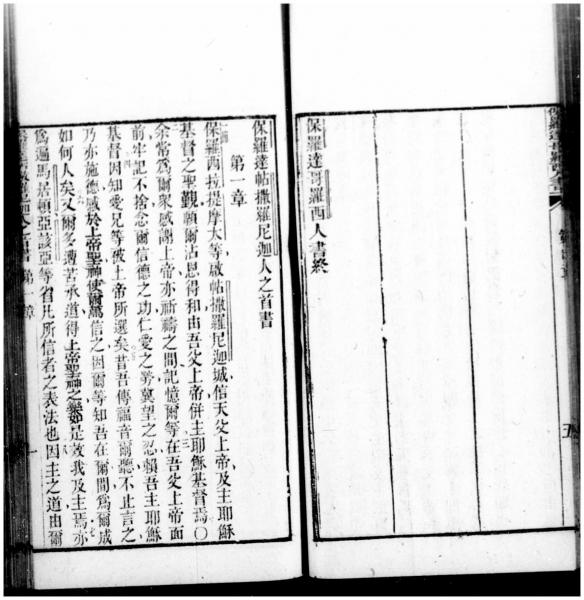 保羅達哥羅西人書終
保羅達帖撒羅尼迦人之首書
第一章
保羅西拉提摩太等啟帖撒羅尼迦城信天父上帝及主耶穌
基督之聖觀願爾沾恩得和由吾父上帝併主耶穌基督焉〇
余常爲爾衆感謝上帝亦祈禱之間記憶爾等在吾父上帝面
前牢記不捨念爾信德之功仁愛之勞冀望之忍賴吾主耶穌
基督因知愛兄等被上帝所選矣昔吾傳福音爾聽不止言之
乃亦施德感於上帝聖神使爾篤信之因爾等知吾在爾間爲爾成
如何人矣又爾多遭苦承道得上帝聖神之樂如是效我及主焉亦
爲遍馬居頓亞該亞等省凡所信者之表法也因主之道由爾
第一章